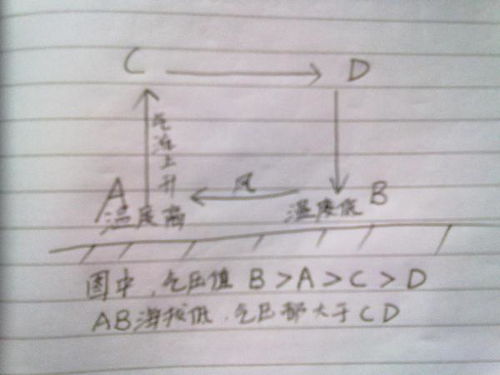 C D
气流上升
A 风 B
温度高 温度低
图中,气压值 B>A>C>D
AB海拔低,气压都大于CD